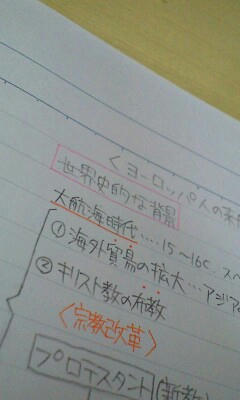 ＜ヨーロッパ人の来
世界史的な背景
大航海時代‥‥15～16C スペ
①海外貿易の拡大…アジアの
②キリスト教の布教
〈宗教改革〉
プロテスタント(新教)